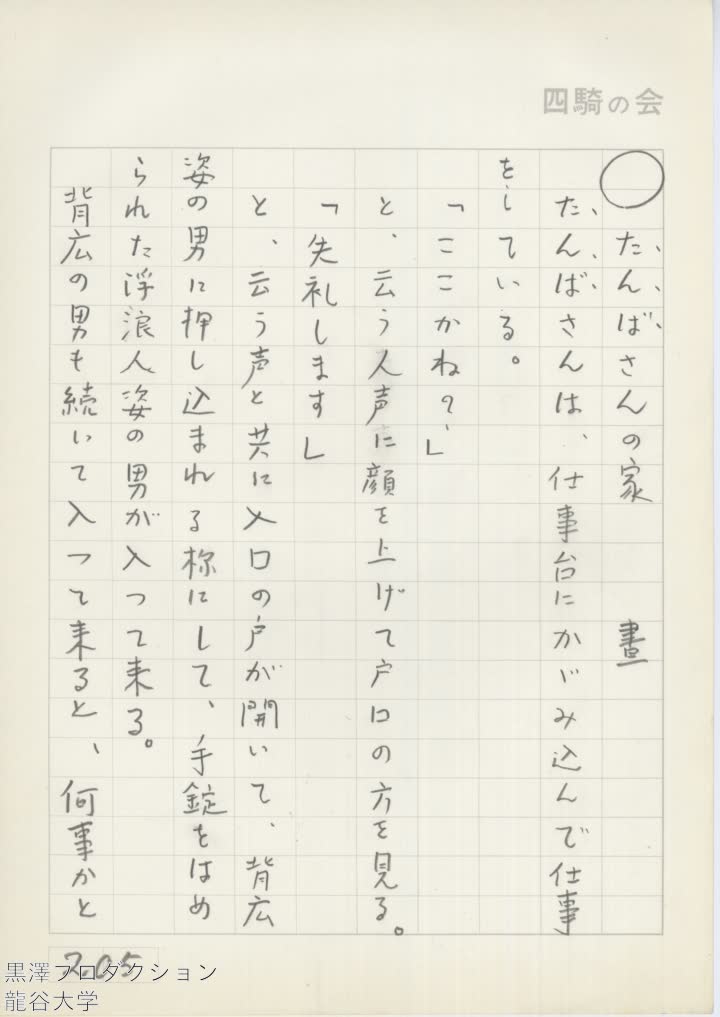 四騎の会
○ たんばさんの家 晝
たんばさんは、仕事台にかゞみ込んで仕事
をしている。
「ここかね？」
と、云う人声に顔を上げて戸口の方を見る。
「失礼します」
と、云う声と共に入口の戸が開いて、背広
姿の男に押し込まれる様にして、手錠をはめ
られた浮浪人姿の男が入って来る。
背広の男も続いて入って来ると、何事かと
205
黒澤プロダクション
龍谷大学